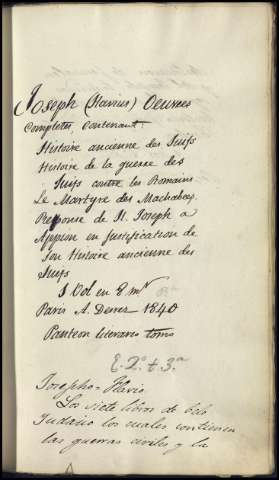 Joseph (Flavius) Oeuvres
Completes contenant:
Histoire ancienne des Juifs
Histoire de la guerre des
Juifs contre les Romains
Le Martyre des Machabees
Response de Fl. Joseph a
Appion en justification de
Son Histoire ancienne des
Juifs
1 Vol en 8. mr
Paris A. Desrez 1840
Panteon literario tomo
E. 2a t. 3.a
Josepho = Flavio
Los siete libros de belo
Judaico los cuales contienen
las guerras civiles y la